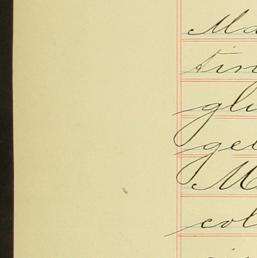 Ma
tin
gli
gel
M
col